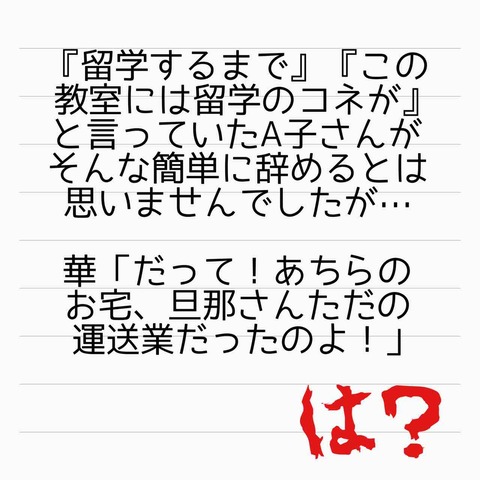 『留学するまで』『この
教室には留学のコネが』
と言っていたA子さんが
そんな簡単に辞めるとは
思いませんでしたが…
華「だって！あちらの
お宅、旦那さんただの
運送業だったのよ！」
は？